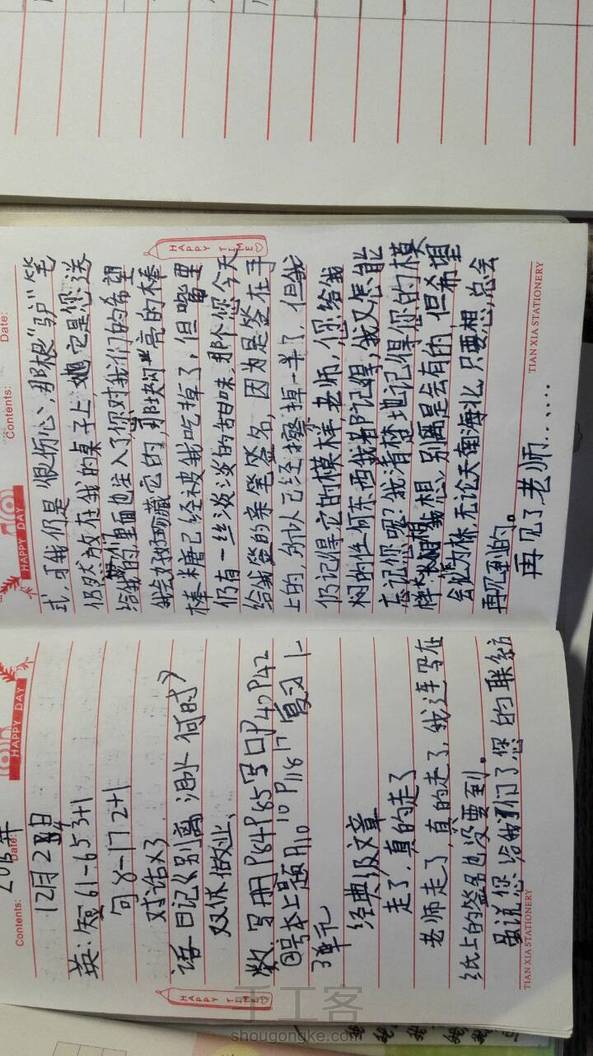 HAPPY DAY
Contents:
Date:
2015年
12月28日
英:短61-65 3+1
句8-17 2+1
对话×3
语 日记《别离 泪 何时》
双休做业、
数 写册P84P85 写口P40P42
④号本上题 P110 P118 17 复习 1-
3单元
经典级文章
走了,真的走了
老师走了,真的走了,我连写在
纸上的签名也没要到。
虽说您给我们了您的联络方
TIAN XIA STATIONERY
HAPPY TIME
HAPPY DAY
Contents:
Date:
式,可我们是很伤心,那根"驴"笔
仍然放在我的桌子上,她它是您送
给我的,里面也注入了你对我们的希望
我会好好珍藏它的,那块亮的棒
棒糖已经被我吃掉了,但嘴里
仍有一丝淡淡的甜味,那个您今天
给我签的亲笔签名,因为是签在手
上的,所以已经擦掉一半了,但我
仍记得它的模样,老师,您给我
们的任何东西我都记得,我又怎能
忘记您呢?我清楚地记得您的模
样,我想,别离是会有的,但希望
会化为,无论天南海北,只要想,总会
再见到的。
再见了老师……
TIAN XIA STATIONERY
HAPPY TIME
手工客
shougongke.com